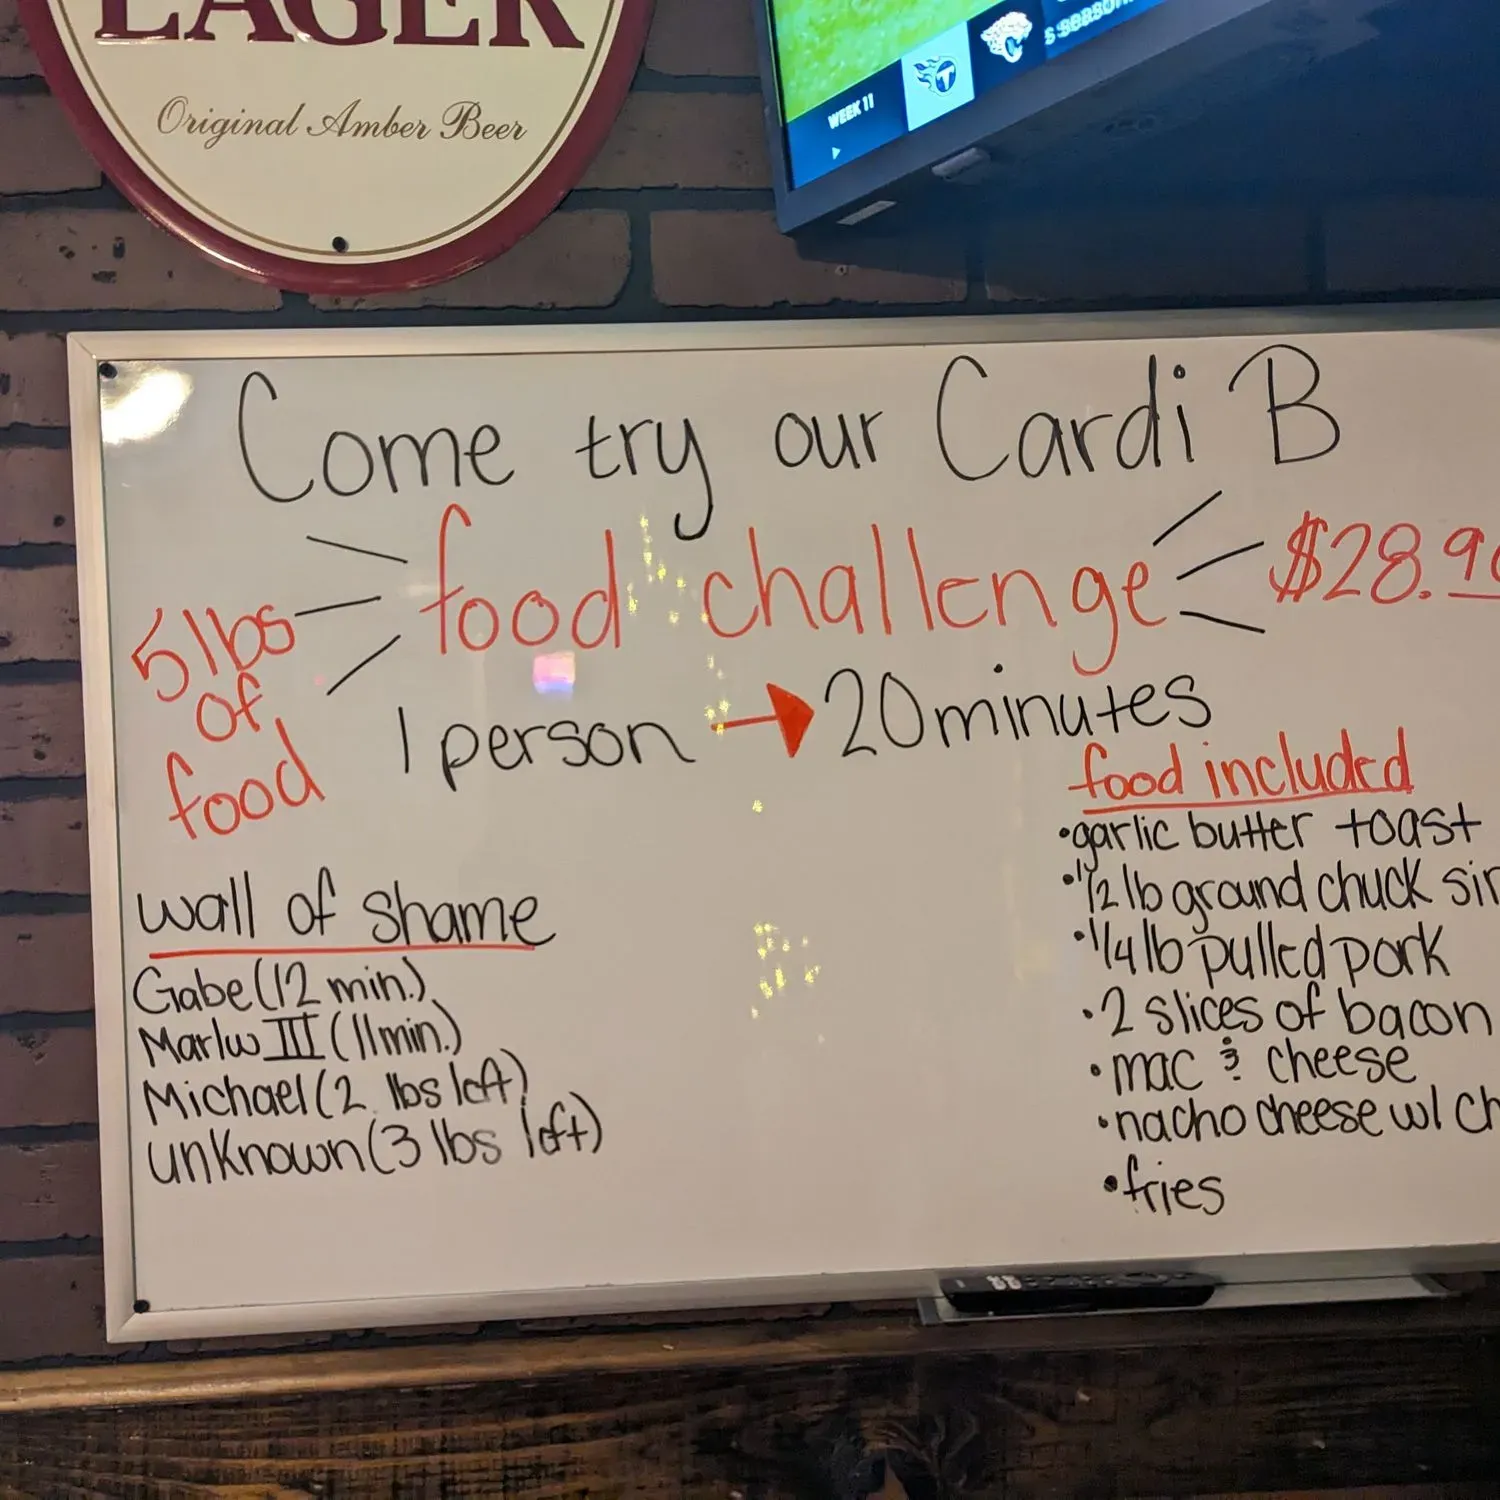 LAGER
Original Amber Beer
WEEK 11
Come try our Cardi B
food challenge
$28.
5 lbs
of
food
1 person → 20 minutes
food included
•garlic butter toast
•1/2 lb ground chuck
•1/4 lb pulled pork
•2 slices of bacon
•mac & cheese
•nacho cheese w/
•fries
wall of shame
Gabe (12 min.)
Marlw III (11 min.)
Michael (2 lbs left)
unknown (3 lbs left)